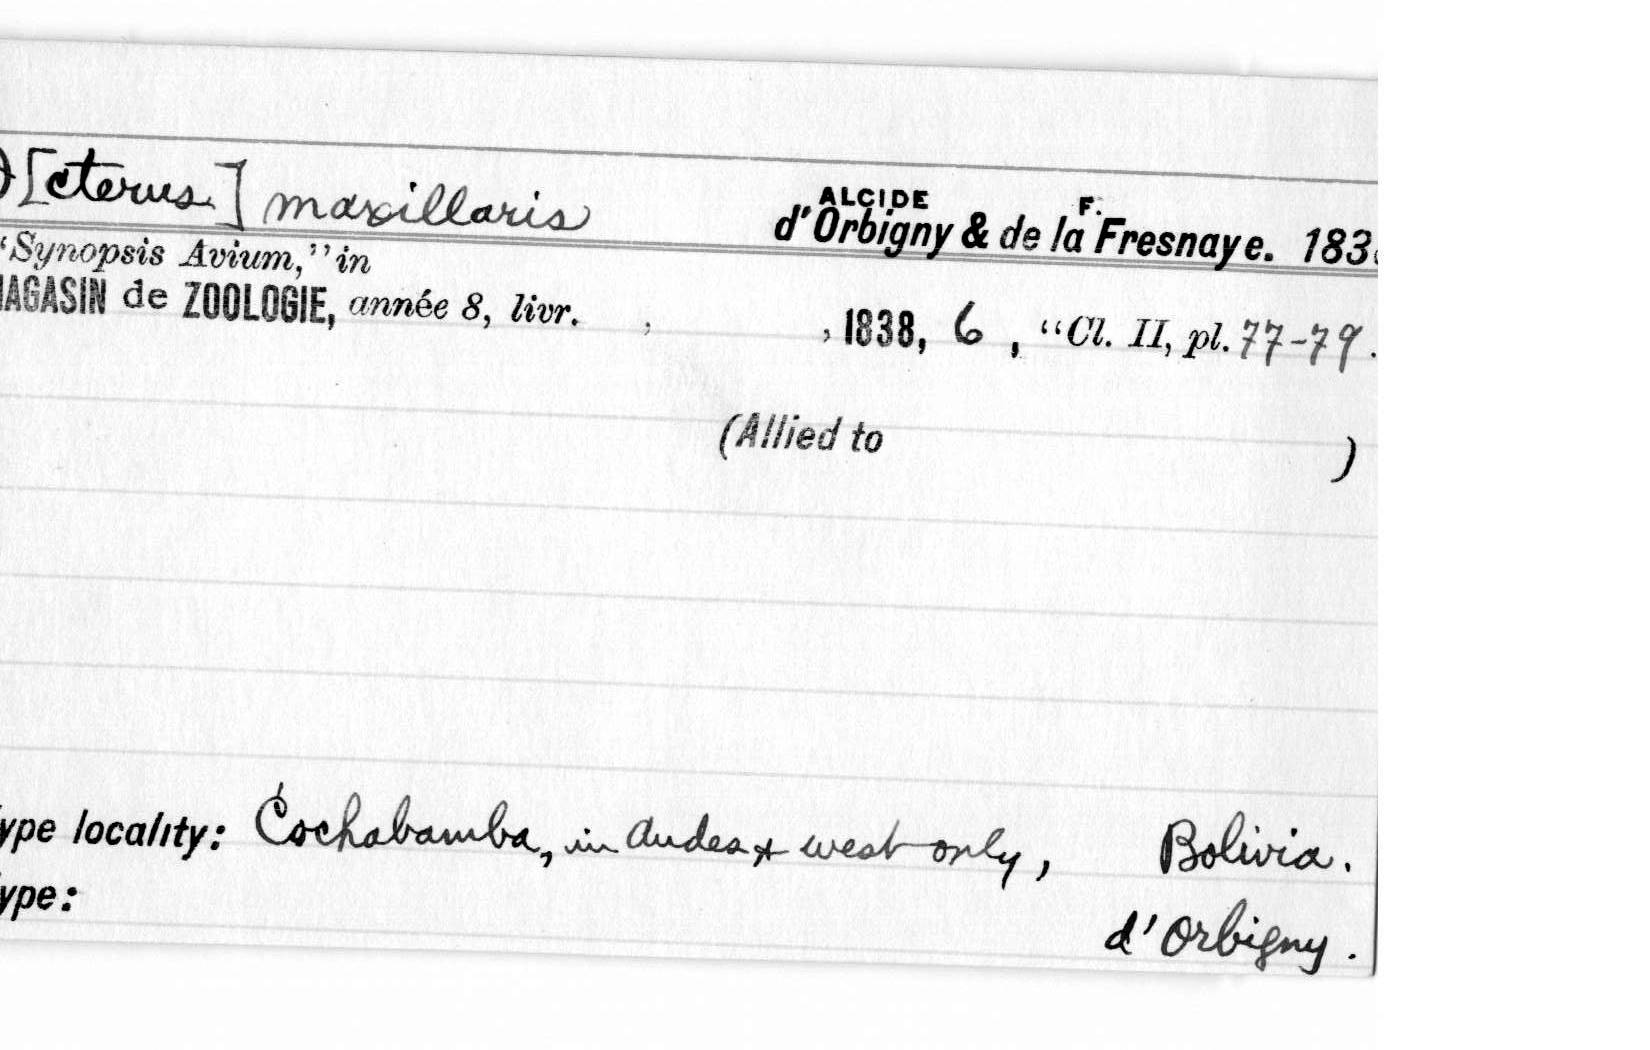 [cterus] maxillaris ALCIDE d'Orbigny & F. de la Fresnaye. 183
"Synopsis Avium," in
MAGASIN de ZOOLOGIE, année 8, livr. , , 1838, 6 , "Cl. II, pl. 77-79.
(Allied to )
ype locality: Cochabamba, in Andes & west only, Bolivia.
ype:
d'Orbigny.